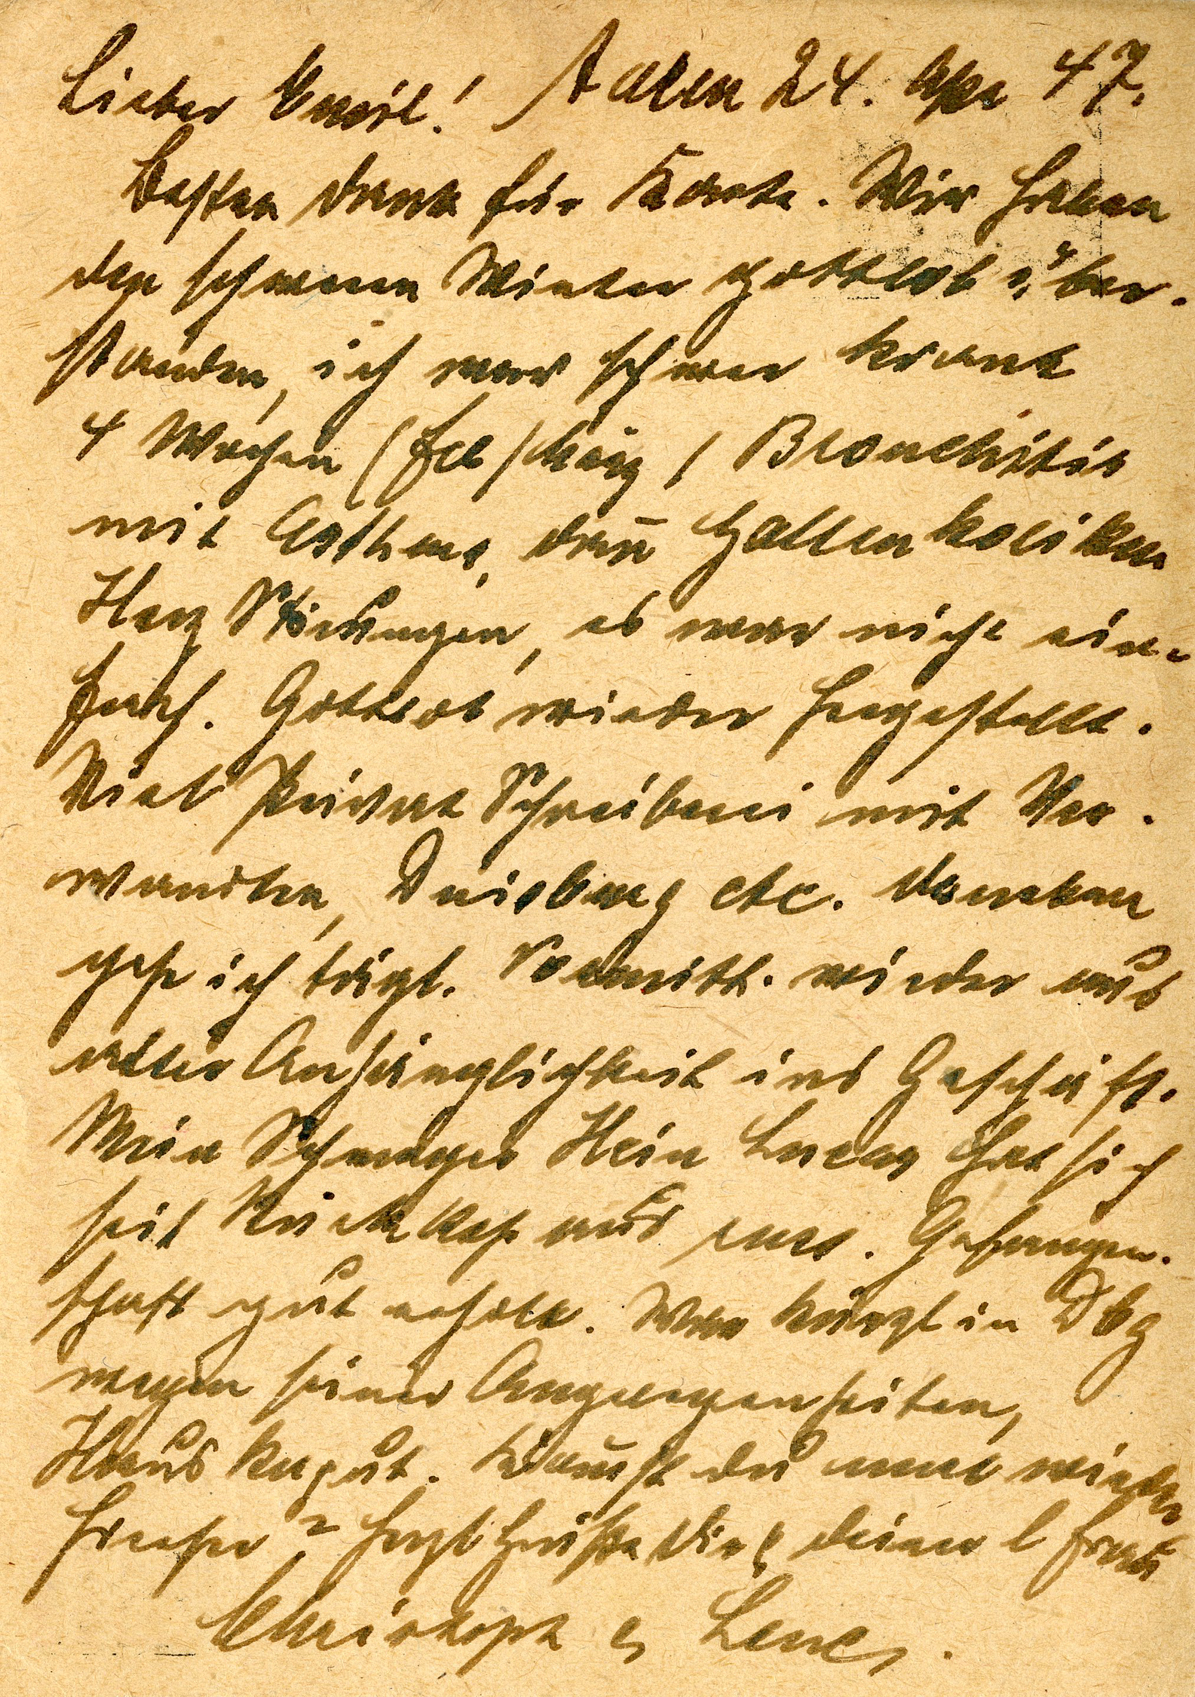 Lieber Emil! Aalen 24. Apr 47.
Besten Dank für Karte. Wir haben
den schweren Winter gottlob über-
standen, ich war schwer krank
4 Wochen (Feb/März) Bronchitis
mit Asthma, dann Gallenkoliken
Herz Störungen, es war nicht ein-
fach. Gottlob wieder hergestellt.
Viel Privat Schreiberei mit Ver-
wandten, Duisburg etc. daneben
gehe ich tägl. Vormitt. wieder aus
alter Anhänglichkeit ins Geschäft.
Mein Schwager Hein Lucas hat sich
seit Rückkehr aus russ. Gefangen-
schaft gut erholt. War kürzl in Dbg
wegen seiner Angelegenheiten,
Haus kaputt. Kommst du mal wieder
hierher? Herzl Grüße Dir & deiner l Frau
Christoph & Lene.